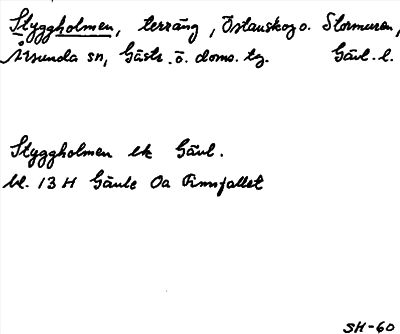 Styggholmen, terräng, Östanskog o. Stormuren,
Årsunda sn, Gästr. ö. doms. tg. Gävl. l.
Styggholmen ek Gävl.
bl. 13 H Gävle Oa Finnfallet
SH-60